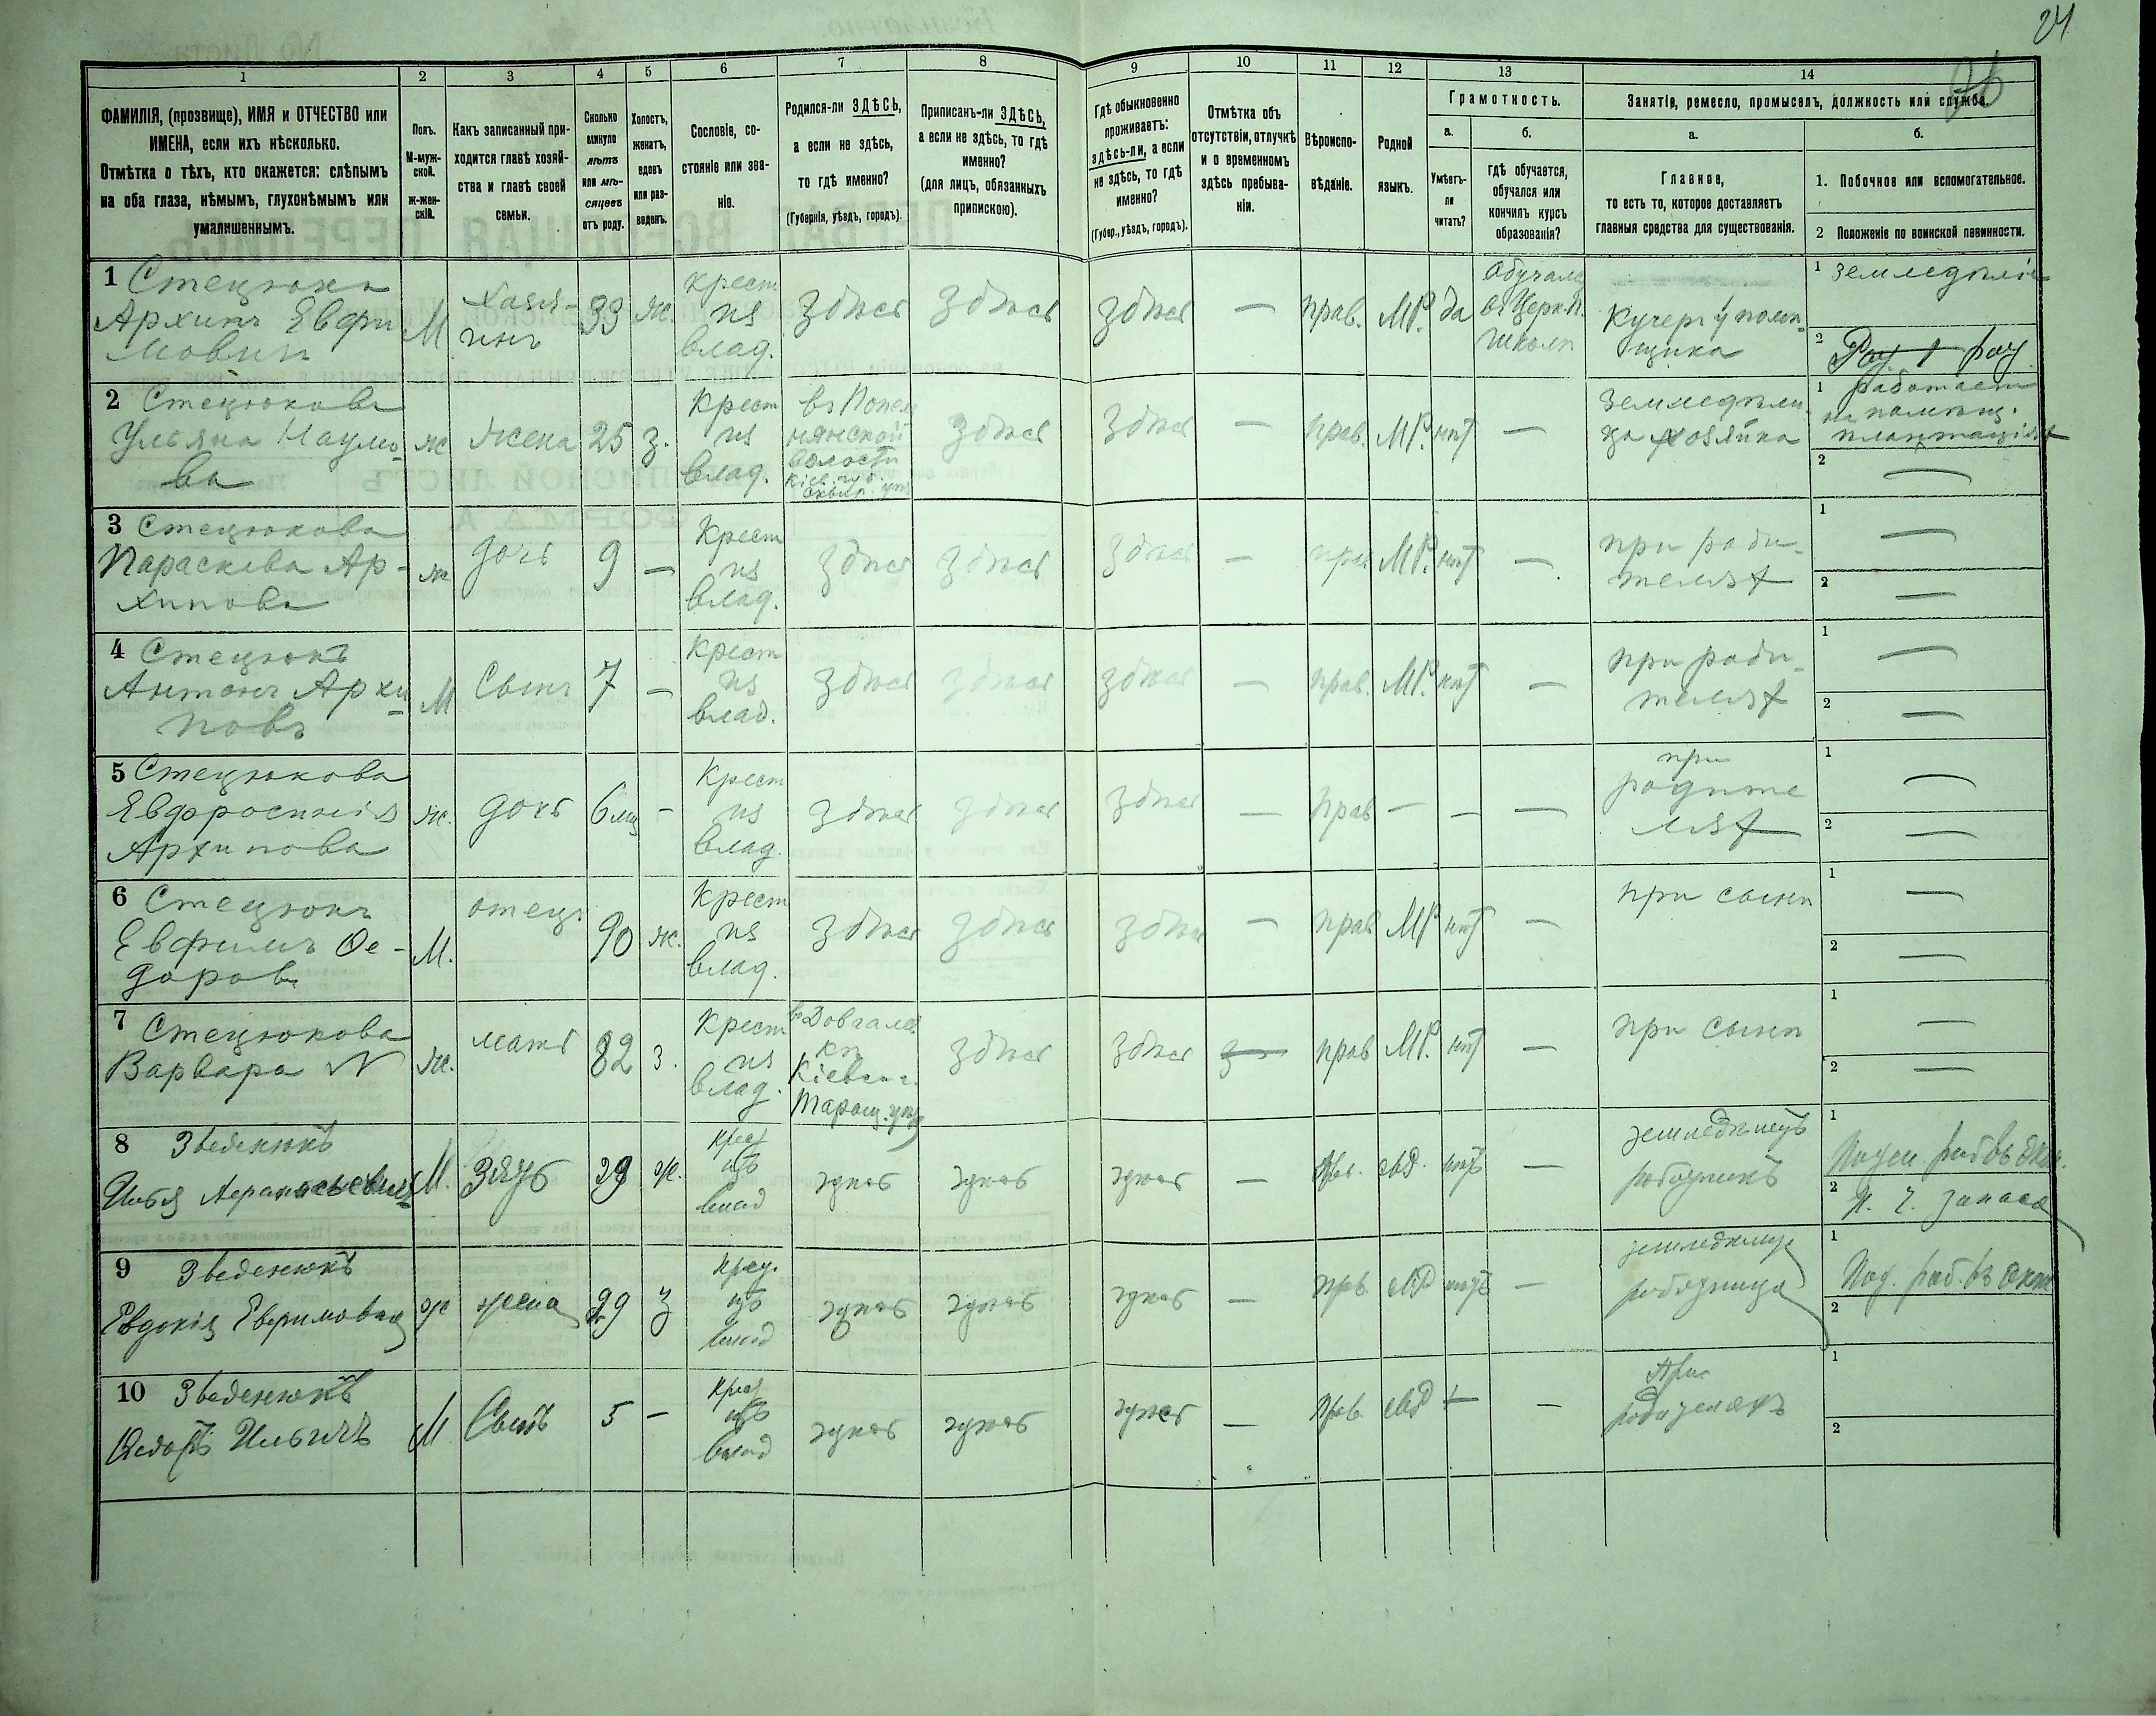 24
96
1
2
3
4
5
6
7
8
9
10
11
12
13
14
ФАМИЛІЯ, (прозвище), ИМЯ и ОТЧЕСТВО или
ИМЕНА, если ихъ нѣсколько.
Отмѣтка о тѣхъ, кто окажется: слѣпымъ
на оба глаза, нѣмымъ, глухонѣмымъ или
умалишеннымъ.
Полъ.
М-муж-
ской.
ж-жен-
скій.
Какъ записанный при-
ходится главѣ хозяй-
ства и главѣ своей
семьи.
Сколько
минуло
лѣтъ
или мѣ-
сяцевъ
отъ роду.
Холостъ,
женатъ,
вдовъ
или раз-
веденъ.
Сословіе, со-
стояніе или зва-
ніе.
Родился-ли ЗДѢСЬ,
а если не здѣсь,
то гдѣ именно?
(Губернія, уѣздъ, городъ).
Приписанъ-ли ЗДѢСЬ,
а если не здѣсь, то гдѣ
именно?
(для лицъ, обязанныхъ
припискою).
Гдѣ обыкновенно
проживаетъ:
здѣсь-ли, а если
не здѣсь, то гдѣ
именно?
(Губер., уѣздъ, городъ).
Отмѣтка объ
отсутствіи, отлучкѣ
и о временномъ
здѣсь пребыва-
ніи.
Вѣроиспо-
вѣданіе.
Родной
языкъ.
Грамотность.
а.
Умѣетъ-
ли
читать?
б.
гдѣ обучается,
обучался или
кончилъ курсъ
образованія?
Занятія, ремесло, промыселъ, должность или служба.
а.
Главное,
то есть то, которое доставляетъ
главныя средства для существованія.
б.
1. Побочное или вспомогательное.
2 Положеніе по воинской повинности.
1 Стецюкъ
Архипъ Евфи
мовичъ
М
Хазя-
инъ
33
ж.
крест
из
влад.
здѣсь
здѣсь
здѣсь
—
прав.
МР.
да
обучалс
въ Церк.п.
школѣ
Кучеръ у помѣ-
щика
1 земледѣліе
2
2 Стецюкова
Ульяна Наумо-
ва
ж
жена
25
з.
Крест
из
влад.
въ Попель
нянской
волости
Кіев. губ.
Сквир. уѣз
здѣсь
здѣсь
—
прав.
МР.
нѣт
—
земледѣли
ца хозяйка
1 работает
на помѣщ.
плантаціях
2 —
3 Стецюкова
Параскева Ар-
хипова
ж
дочь
9
—
Крест
из
влад.
здѣсь
здѣсь
здѣсь
—
прав
МР.
нѣт
—
при роди-
телях
1 —
2 —
4 Стецюкъ
Антонъ Архи-
повъ
М
Сынъ
7
—
Крест
из
влад.
здѣсь
здѣсь
здѣсь
—
прав.
МР.
нѣт
—
при роди-
телях
1 —
2 —
5 Стецюкова
Евфросинія
Архипова
ж.
дочь
6 мц
-
Крест
из
влад.
здѣсь
здѣсь
здѣсь
—
прав
—
—
—
при
родите
лях
1 —
2 —
6 Стецюкъ
Евфимъ Ѳе-
доровъ
М.
отецъ
90
ж.
Крест
из
влад.
здѣсь
здѣсь
здѣсь
—
прав
МР
нѣт
—
при сынѣ
1 —
2 —
7 Стецюкова
Варвара N
ж.
мать
82
з.
Крест
из
влад.
въ Довгалев
кѣ
Кіевск г.
Таращ. уѣз
здѣсь
здѣсь
прав
МР.
нѣт
—
при сынѣ
1 —
2 —
8 Зведенюкъ
Илья Аѳанасьевичъ
М.
Зять
29
ж.
Крест
изъ
влад
здѣсь
здѣсь
здѣсь
—
Прав.
МР.
нѣтъ
—
земледѣлецъ
работникъ
1
2 н. ч. запаса
9 Зведенюкъ
Евдокія Евфимовна
ж
жена
29
З
Крест.
изъ
влад
здѣсь
здѣсь
здѣсь
—
прав.
МР
нѣтъ
—
земледѣлица
работница
1
2
10 Зведенюкъ
Ѳедоръ Ильичъ
М
Сынъ
5
—
Крест
изъ
влад
здѣсь
здѣсь
здѣсь
—
Прав.
МР
—
—
При
родителяхъ
1
2